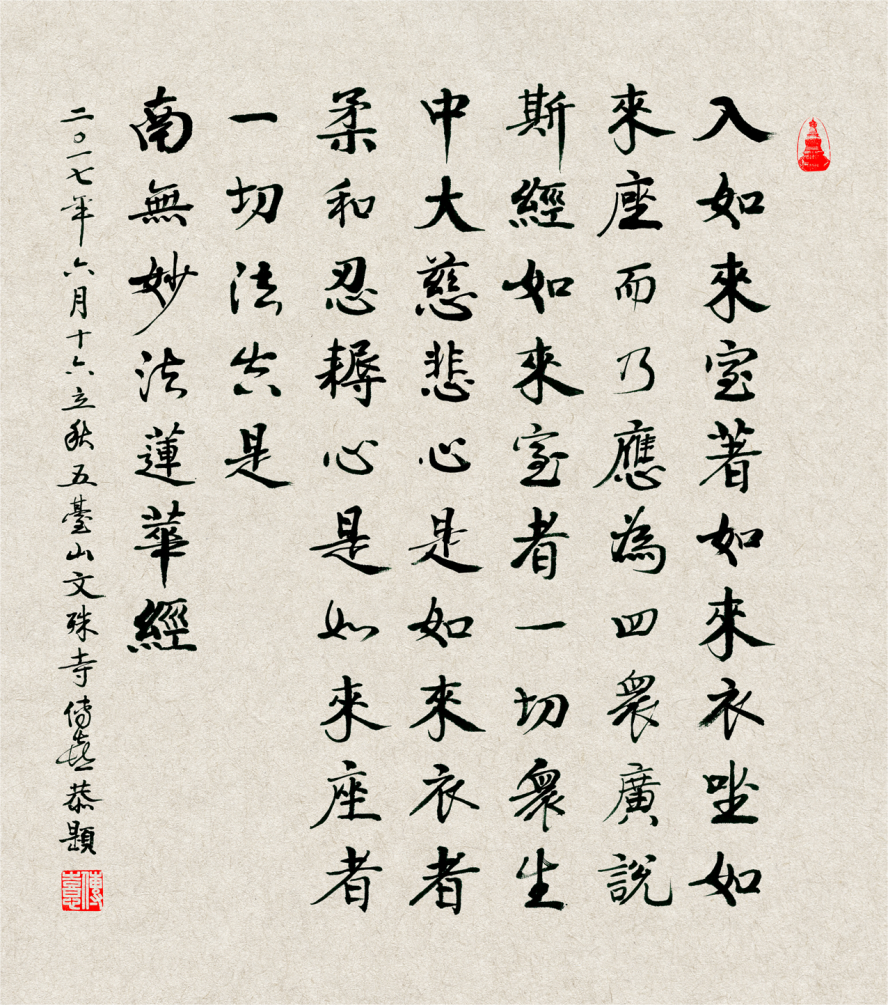 入如來室著如來衣坐如
來座而乃應為四眾廣說
斯經如來室者一切眾生
中大慈悲心是如來衣者
柔和忍耨心是如来座者
一切法空是
南無妙法蓮華經
二〇一七年六月十六立秋五臺山文殊寺傳喜恭題
傳喜